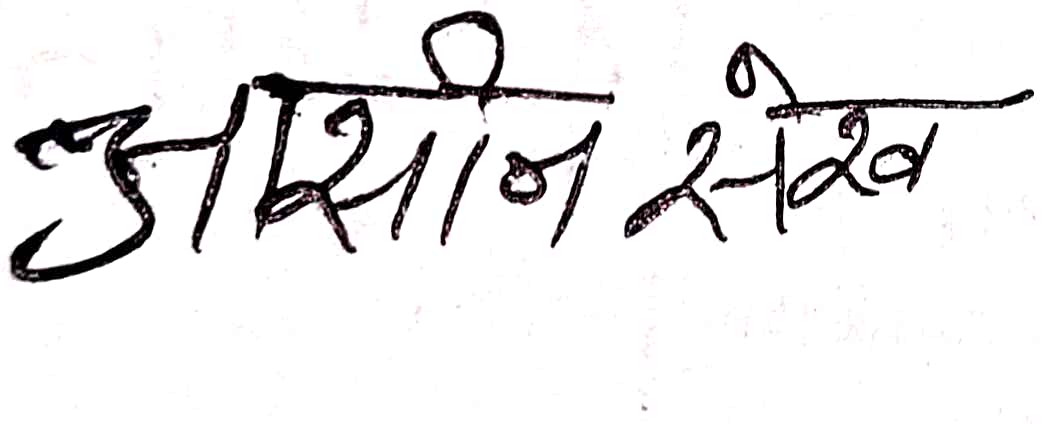 आसीन सेख